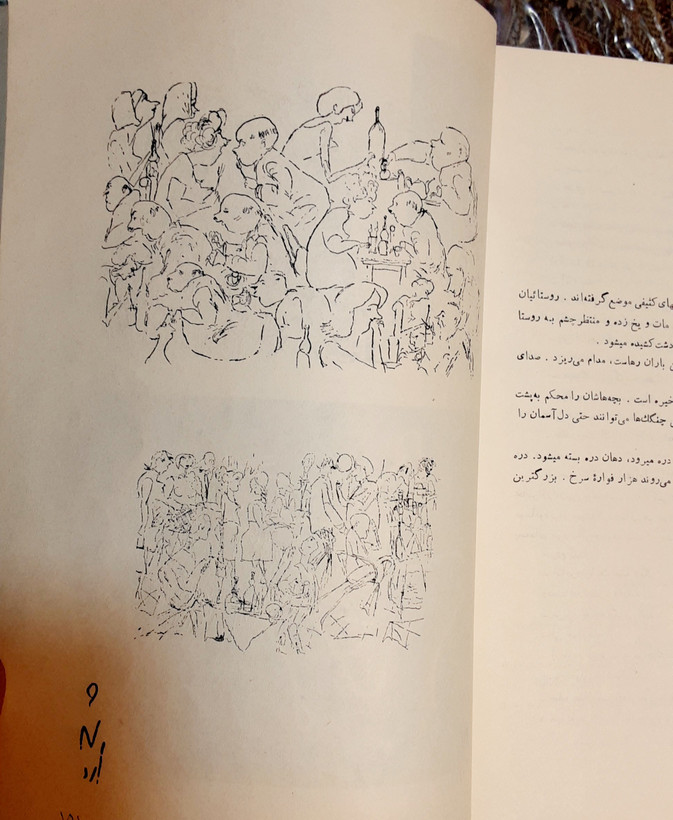 های کثیفی موضع گرفته‌اند . روستائیان
مات و یخ زده و منتظر چشم به روستا
دشت کشیده میشود .
باران رهاست، مدام می‌ریزد . صدای
خیره است . بچه‌هاشان را محکم به پشت
چنگک‌ها می‌توانند حتی دل آسمان را
دره میرود، دهان دره بسته میشود. دره
می‌روند هزار فوارهٔ سرخ . بزرگترین